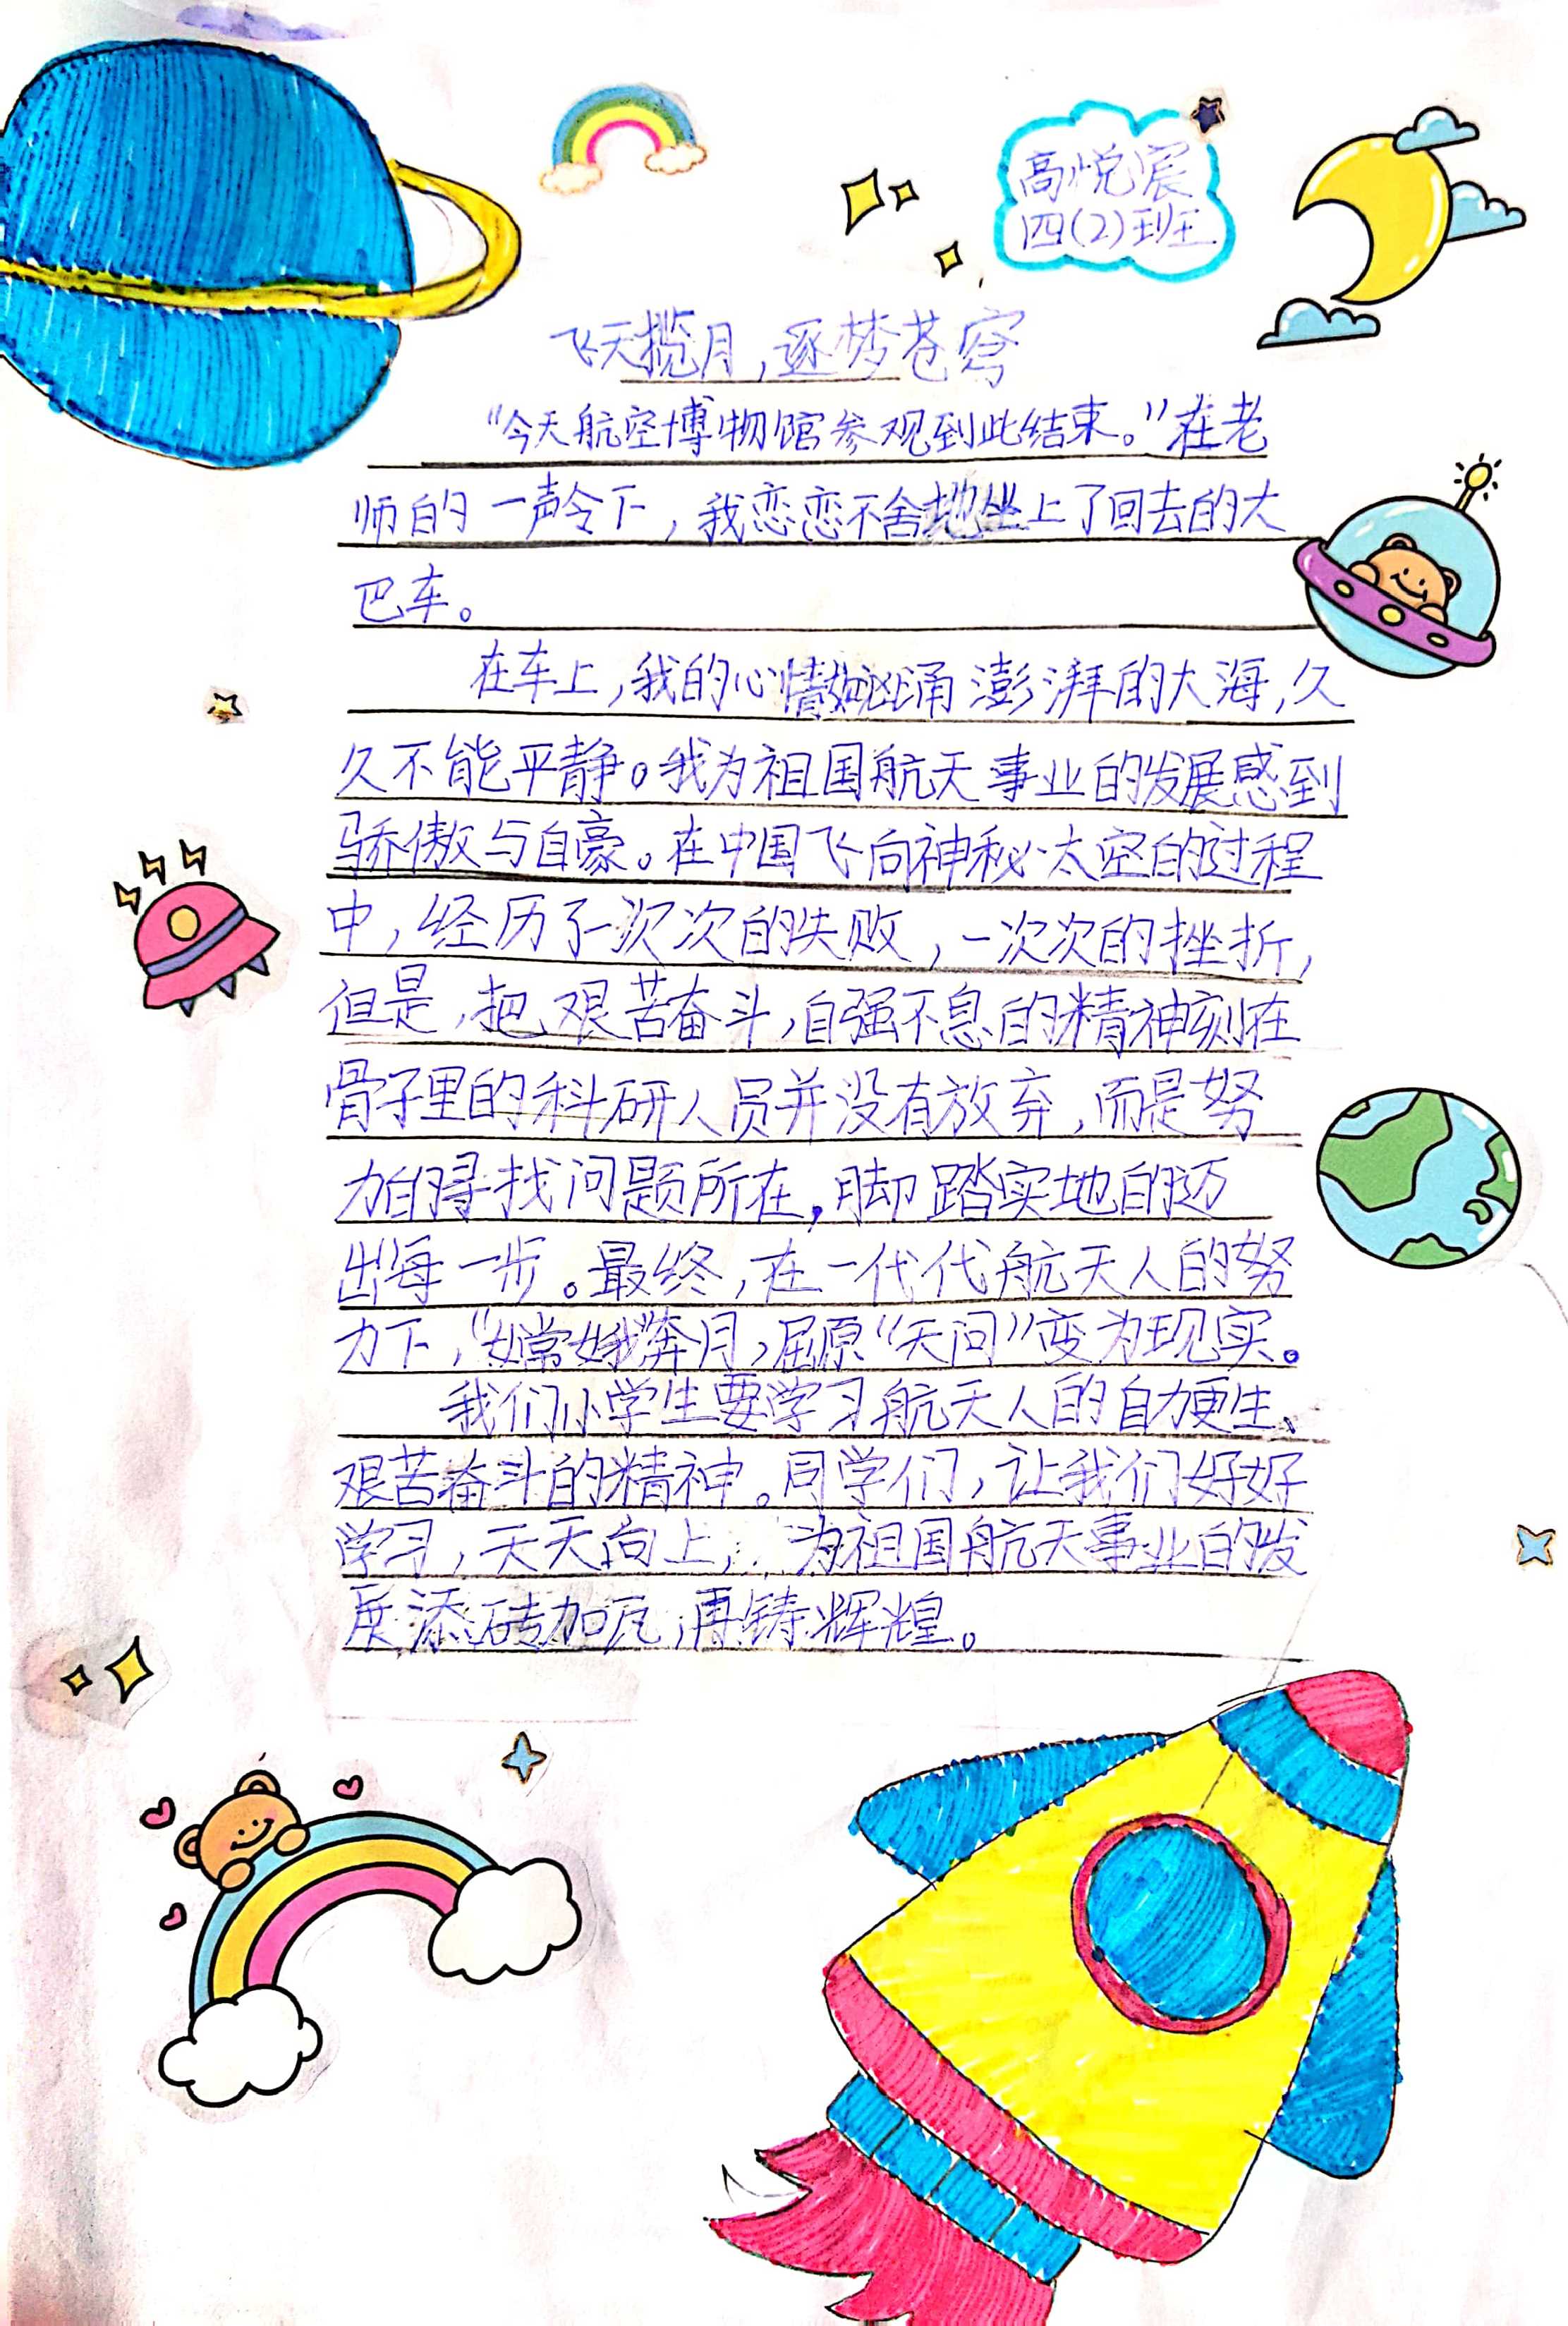 高悦宸
四(2)班
飞天揽月,逐梦苍穹
“今天航空博物馆参观到此结束。”在老
师的一声令下,我恋恋不舍地坐上了回去的大
巴车。
在车上,我的心情如汹涌澎湃的大海,久
久不能平静。我为祖国航天事业的发展感到
骄傲与自豪。在中国飞向神秘太空的过程
中,经历了一次次的失败,一次次的挫折,
但是,把艰苦奋斗,自强不息的精神刻在
骨子里的科研人员并没有放弃,而是努
力的寻找问题所在,脚踏实地的迈
出每一步。最终,在一代代航天人的努
力下,“嫦娥”奔月,屈原“天问”变为现实。
我们小学生要学习航天人的自力更生、
艰苦奋斗的精神。同学们,让我们好好
学习,天天向上,为祖国航天事业的发
展添砖加瓦,再铸辉煌。